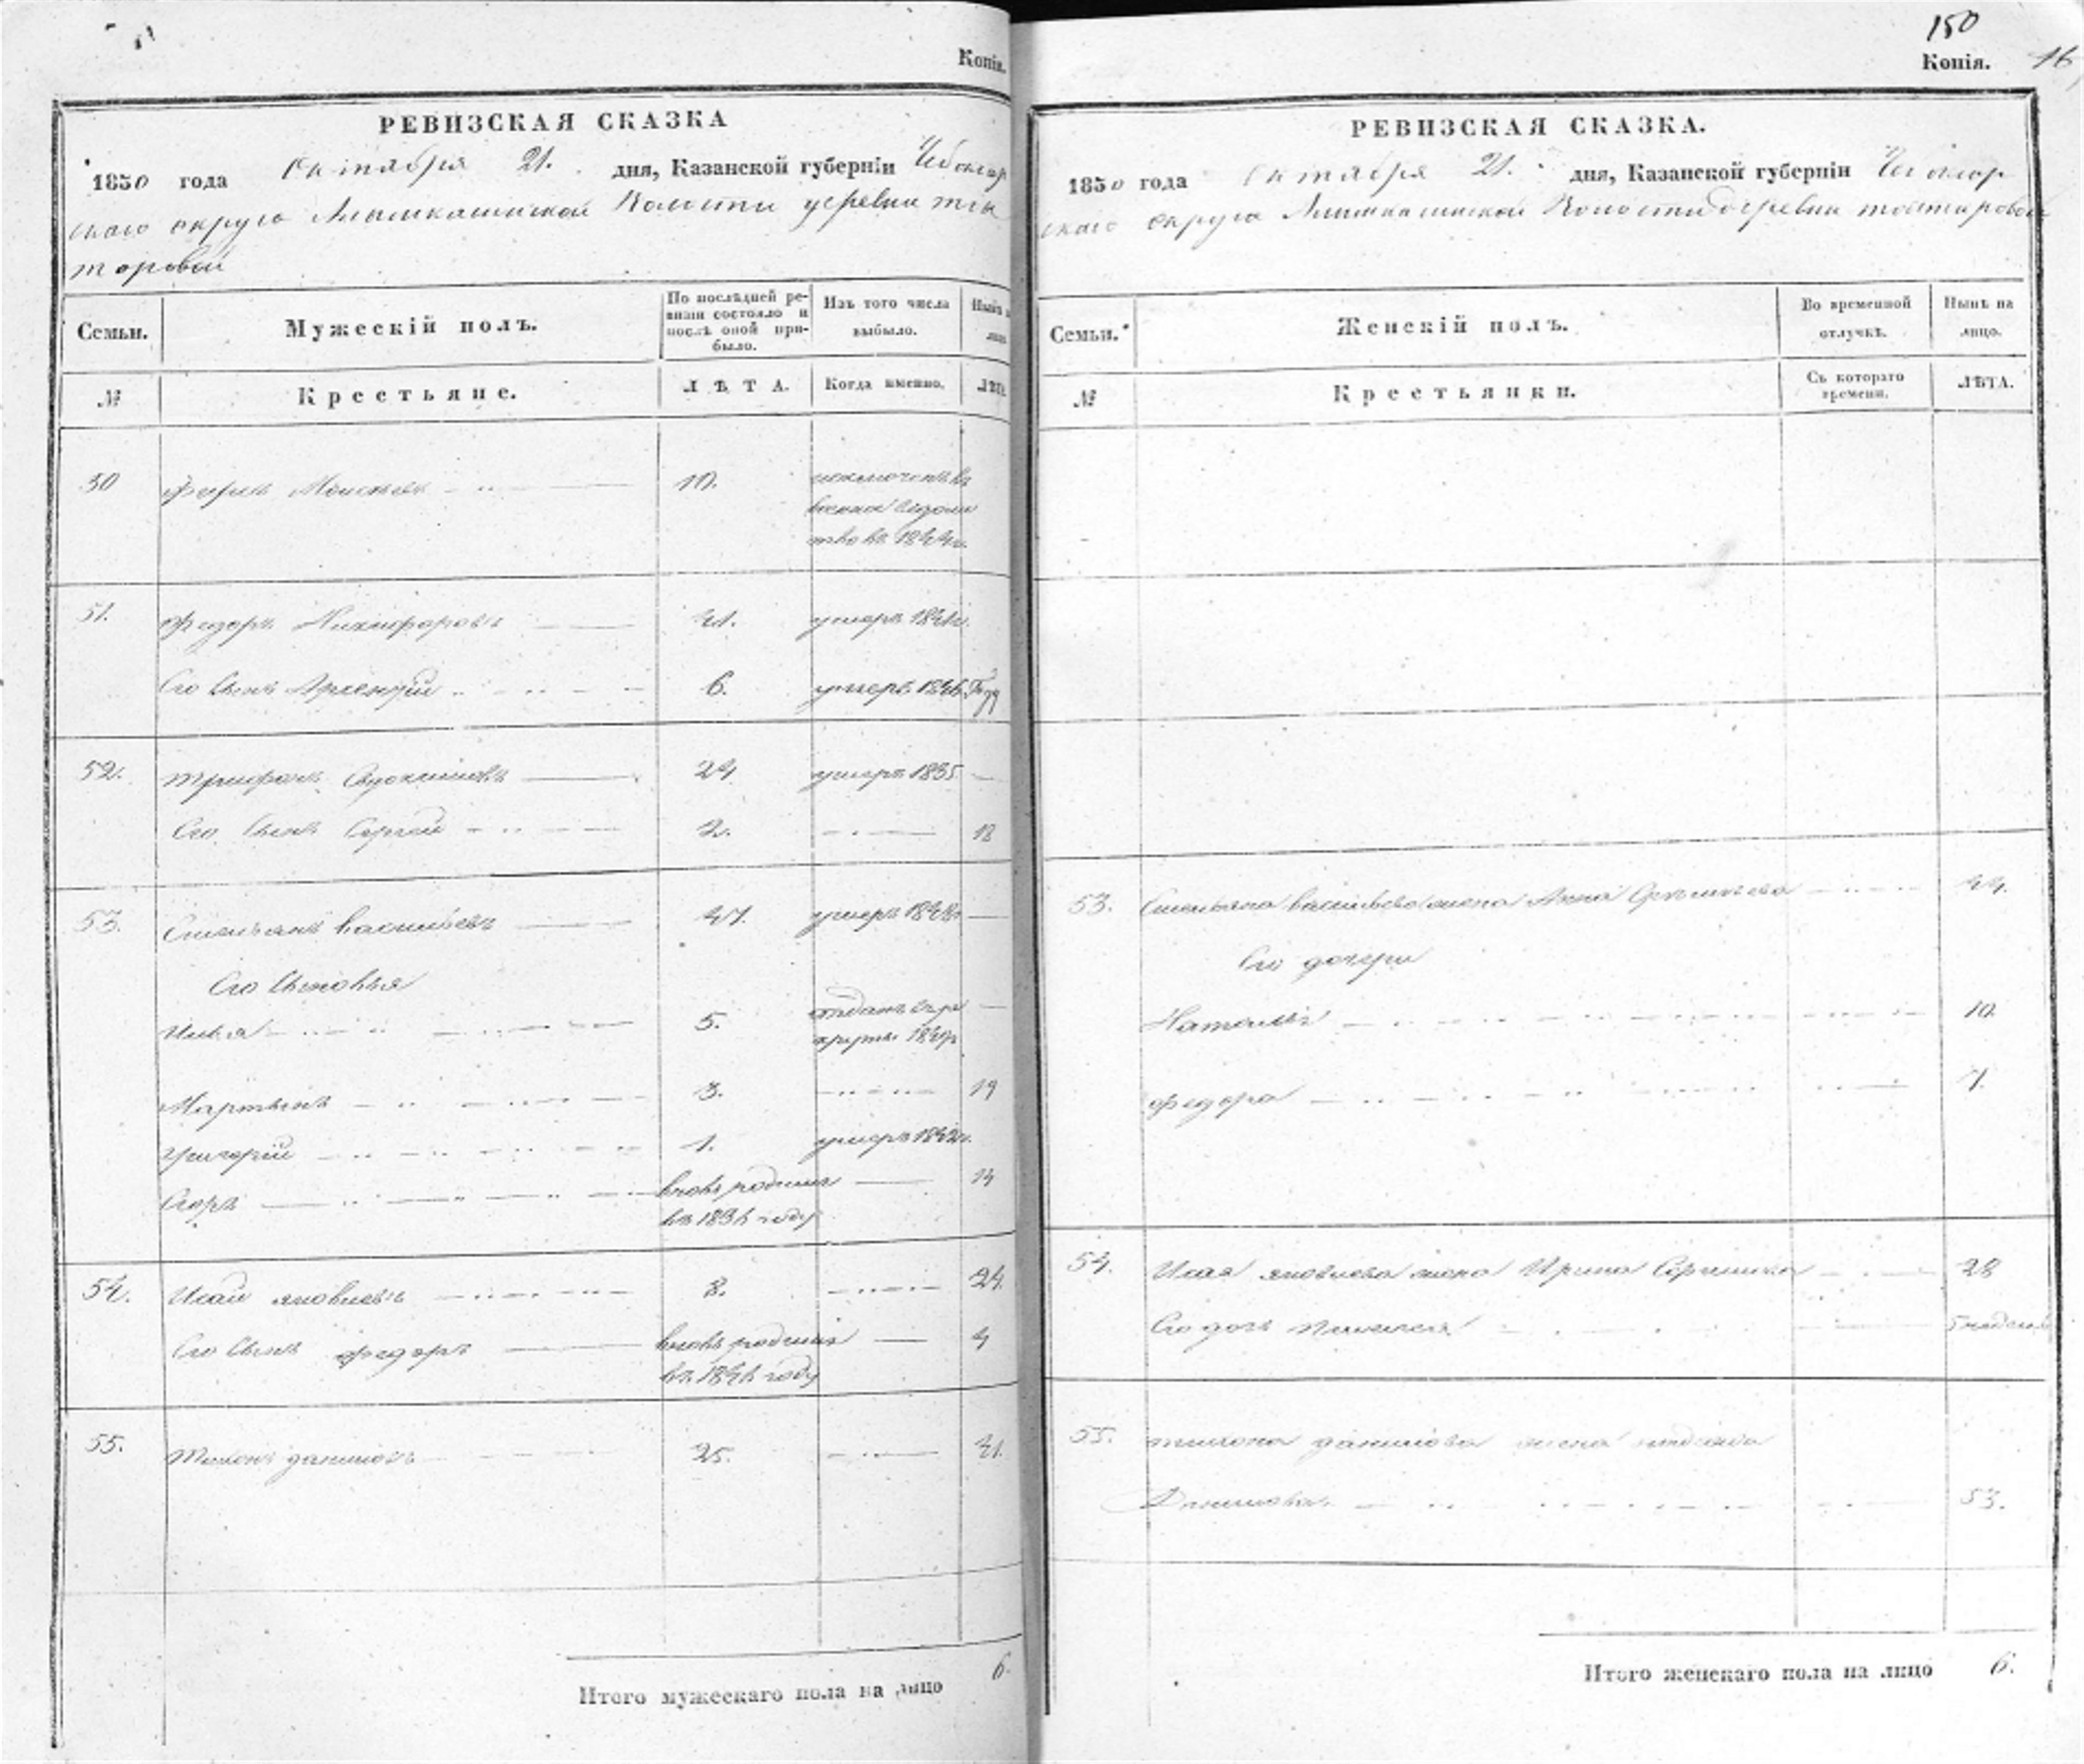 Копія.
РЕВИЗСКАЯ СКАЗКА
1850 года Октября 21. дня, Казанской губерніи Чебоксар
скаго округа Волости деревни
торовой
Семьи.
Мужескій полъ.
По послѣдней ре-
визіи состояло и
послѣ оной при-
было.
Изъ того числа
выбыло.
№
Крестьяне.
ЛѢТА.
Когда именно.
ЛѢТА.
50 Моисеевъ 10. исключенъ въ
военное ведомс
тво въ 1844г.
51. Федоръ Никифоровъ 41. умеръ 1841г.
Его сынъ 6. умеръ 1846 Году
52. Трифонъ Евдокимовъ 24 умеръ 1835 —
Его сынъ Сергей 2. 18
53. Степанъ Васильевъ 47. умеръ 1848г —
Его сыновья
Илья 5. отданъ въ ре —
круты 1849г
Мартынъ 3. 19
Григорій 1. умеръ
Егоръ вновь родился 14
въ 1836 году
54. Исай Яковлевъ 8. 24.
Его сынъ Федоръ вновь родился 4
въ 1846 году
55. Тихонъ Даниловъ 25. 41.
Итого мужескаго пола на лицо 6.
150
Копія. 16
РЕВИЗСКАЯ СКАЗКА.
1850 года Октября 21. дня, Казанской губерніи Чебоксар
скаго округа Волости деревни
Семьи.
Женскій полъ.
Во временной
отлучкѣ.
Нынѣ на
лицо.
№
Крестьянки.
Съ котораго
времени.
ЛѢТА.
53. Степана Васильева жена Анна 44.
Его дочери
Наталья 10.
Федора 7.
54. Исая Яковлева жена Ирина 28
Его дочь 5 недель
55. Тихона Данилова жена
Данилова. 53.
Итого женскаго пола на лицо 6.